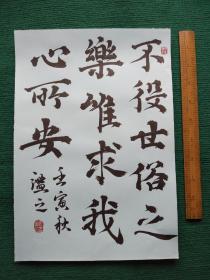 不役世俗之
樂唯求我
心所安
壬寅秋
謐之